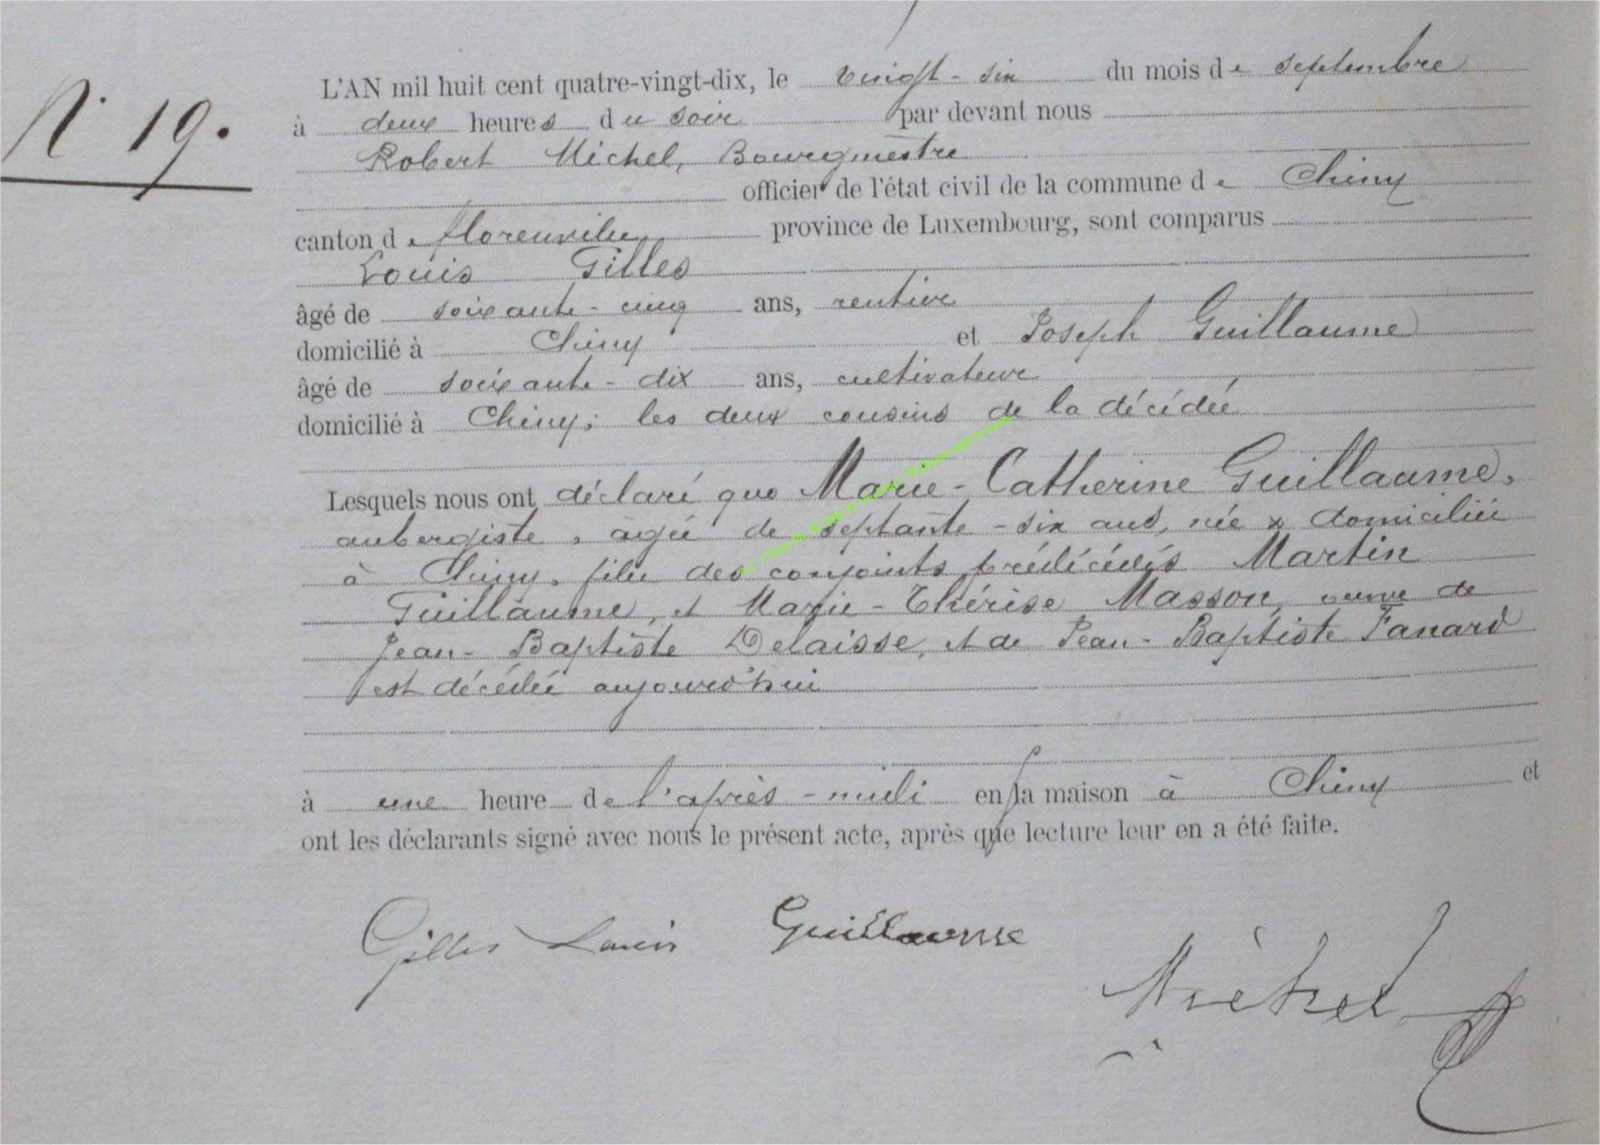 N° 19.
L'AN mil huit cent quatre-vingt-dix, le vingt-six du mois de septembre
à deux heures du soir par devant nous
Robert Michel, Bourgmestre
officier de l'état civil de la commune de Chiny
canton de Florenville province de Luxembourg, sont comparus
Louis Gilles
âgé de soixante-cinq ans, rentier
domicilié à Chiny et Joseph Guillaume
âgé de soixante-dix ans, cultivateur
domicilié à Chiny; les deux cousins de la décédée
Lesquels nous ont déclaré que Marie-Catherine Guillaume,
aubergiste, âgée de septante-six ans, née & domiciliée
à Chiny, fille des conjoints prédécédés Martin
Guillaume, et Marie-Thérèse Masson, veuve de
Jean-Baptiste Delaisse, et de Jean-Baptiste Fanard
est décédée aujourd'hui
à une heure de l'après-midi en sa maison à Chiny et
ont les déclarants signé avec nous le présent acte, après que lecture leur en a été faite.
Gilles Louis Guillaume
Michel